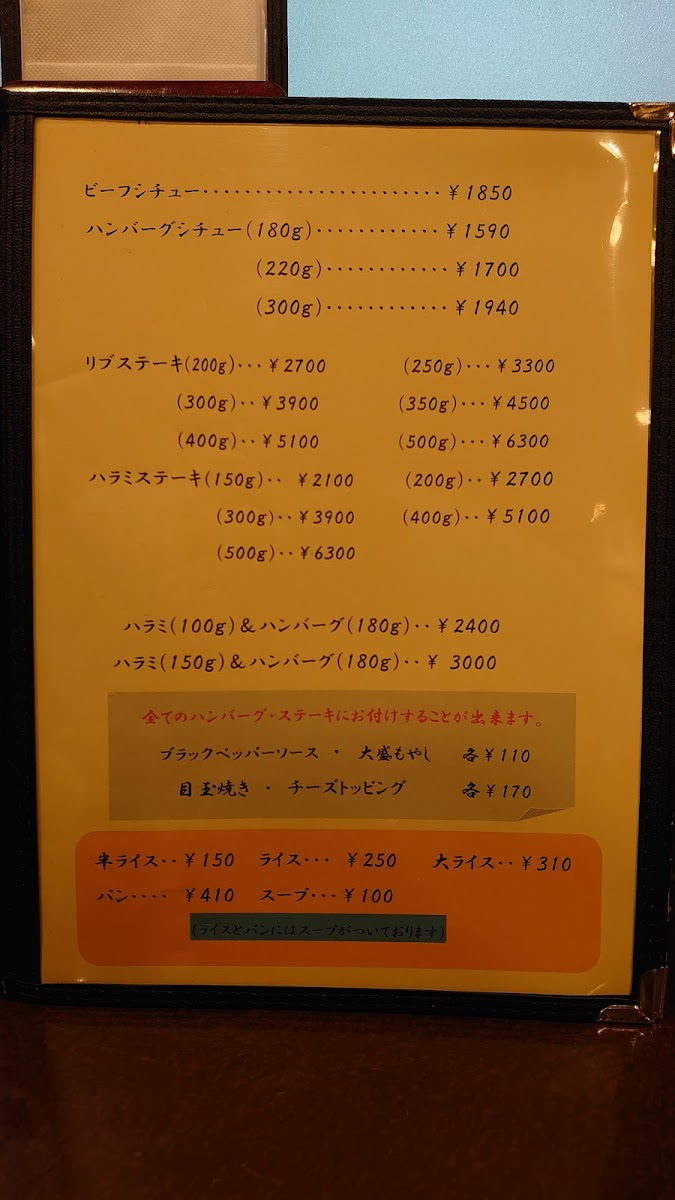 ビーフシチュー・・・・・・・・・・・・・・・・・・・・・・・¥1850
ハンバーグシチュー(180g)・・・・・・・・・・・・¥1590
(220g)・・・・・・・・・・・・¥1700
(300g)・・・・・・・・・・・・¥1940
リブステーキ(200g)・・・¥2700 (250g)・・・¥3300
(300g)・・¥3900 (350g)・・・¥4500
(400g)・・¥5100 (500g)・・¥6300
ハラミステーキ(150g)・・ ¥2100 (200g)・・¥2700
(300g)・・¥3900 (400g)・・¥5100
(500g)・・¥6300
ハラミ(100g)&ハンバーグ(180g)・・¥2400
ハラミ(150g)&ハンバーグ(180g)・・¥ 3000
全てのハンバーグ・ステーキにお付けすることが出来ます。
ブラックペッパーソース ・ 大盛もやし 各¥110
目玉焼き ・ チーズトッピング 各¥170
半ライス・・¥150 ライス・・・ ¥250 大ライス・・¥310
パン・・・・ ¥410 スープ・・・¥100
(ライスとパンにはスープがついております)